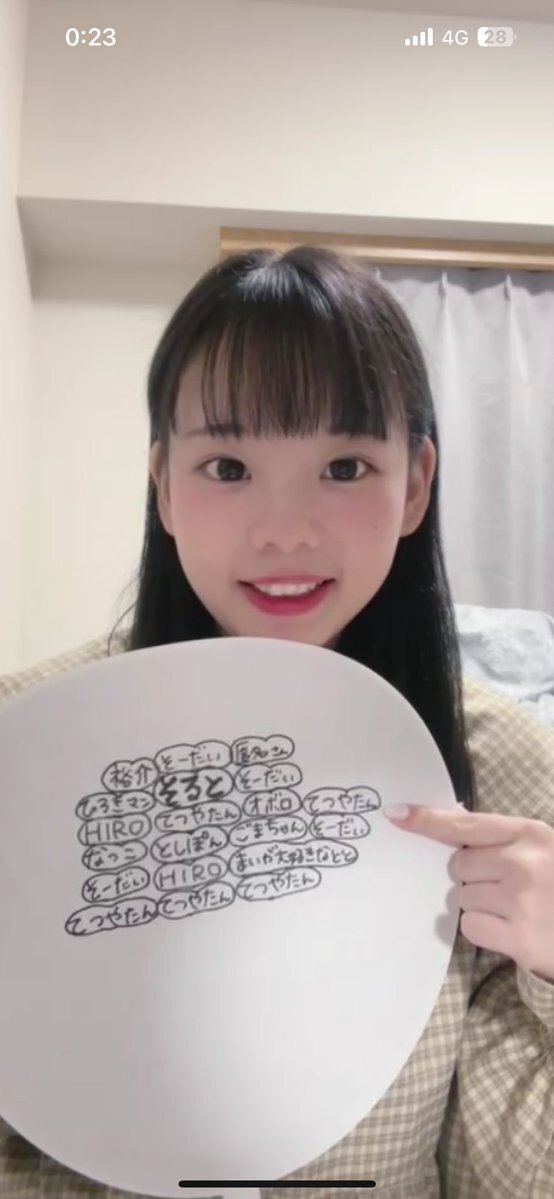 0:23 4G 28
裕介 そーだい 匿名さん
ひろぎマン そると そーだい
HIRO てつやたん オボロ てつやたん
なつこ としぽん ごまちゃん そーだい
そーだい HIRO まいが大好きなとと
てつやたん てつやたん てつやたん